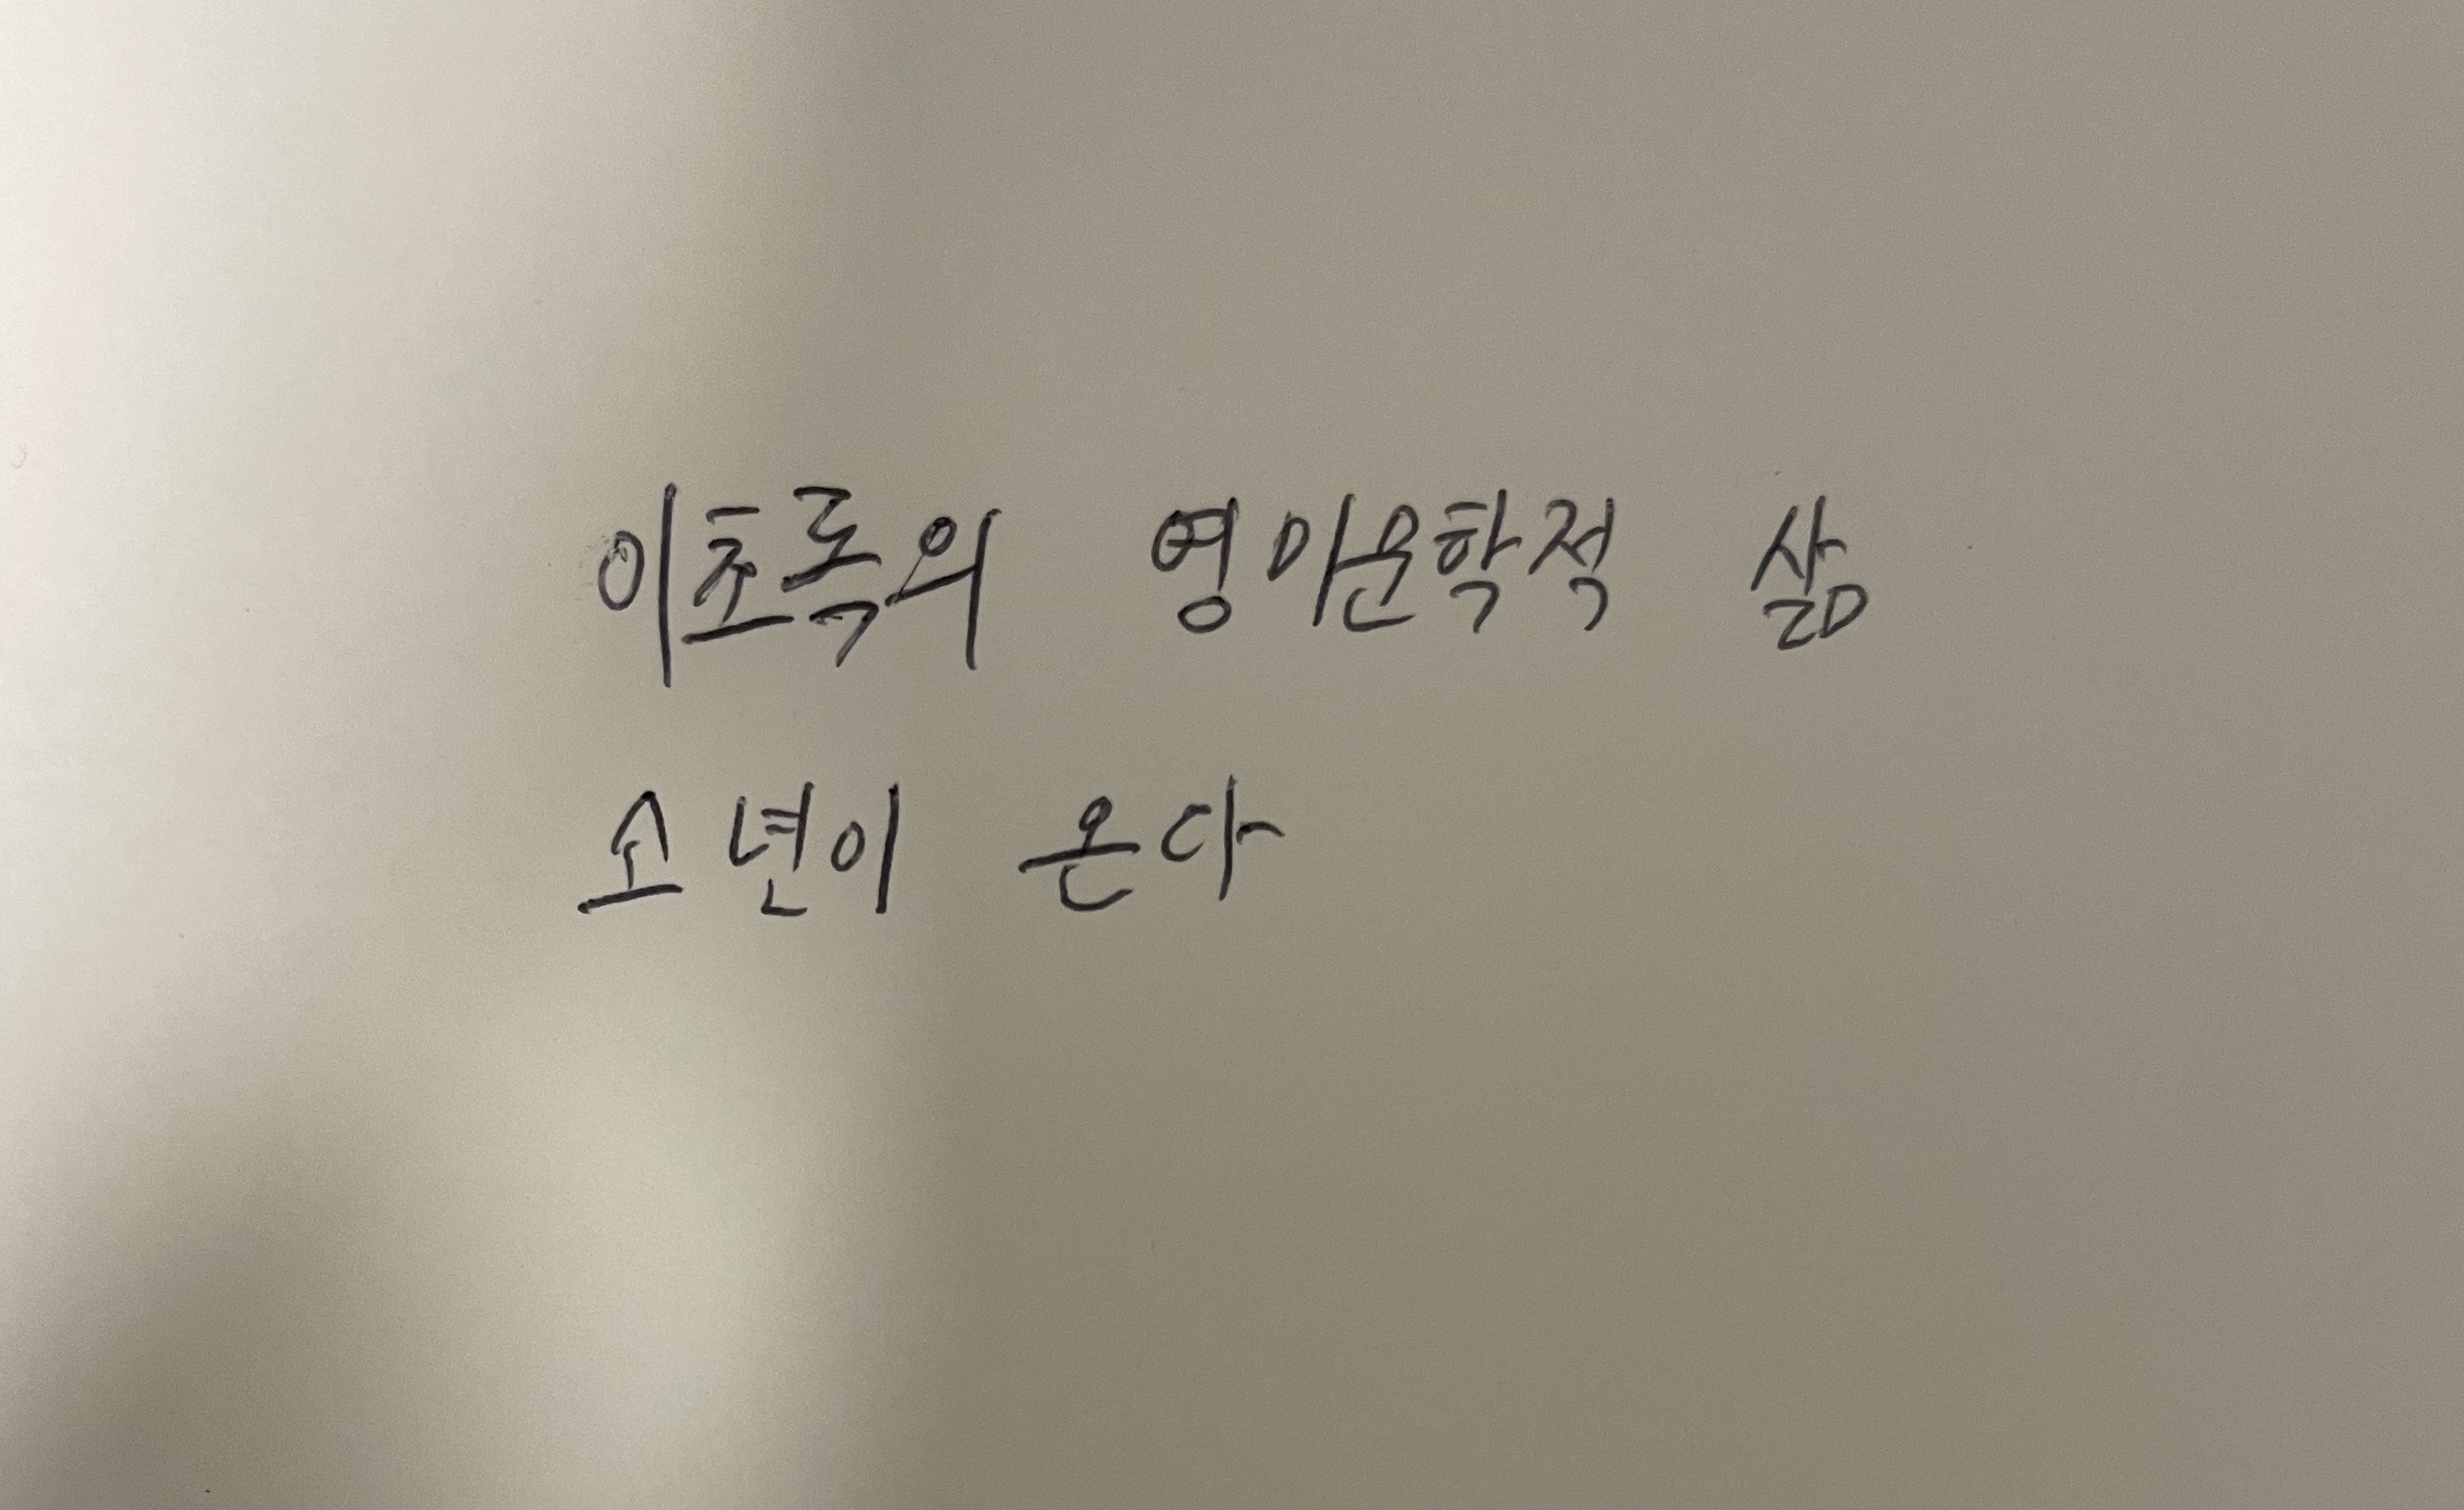 이초록의 영미문학적 삶
소년이 온다